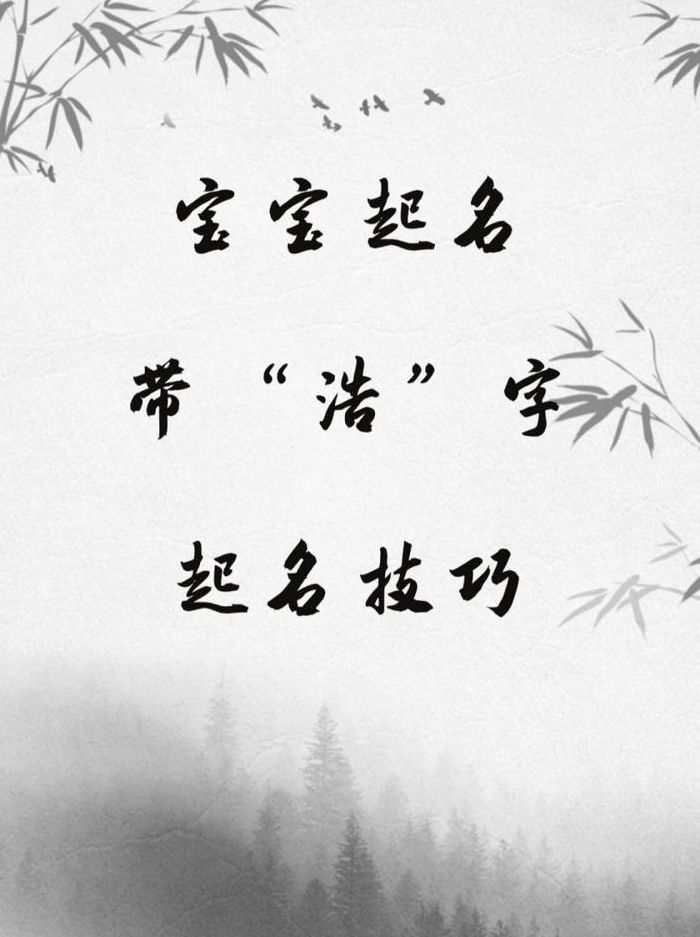 宝宝起名
带“浩”字
起名技巧